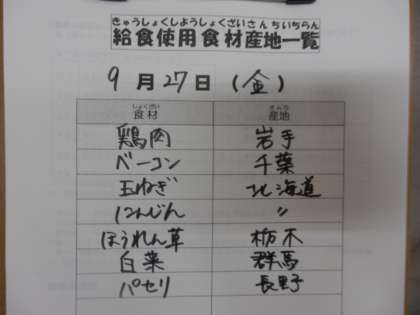 きゅうしょくしようしょくざいさんちいちらん
給食使用食材産地一覧
9月27日(金)
しょくざい さんち
食材 産地
鶏肉 岩手
ベーコン 千葉
玉ねぎ 北海道
にんじん 〃
ほうれん草 栃木
白菜 群馬
パセリ 長野